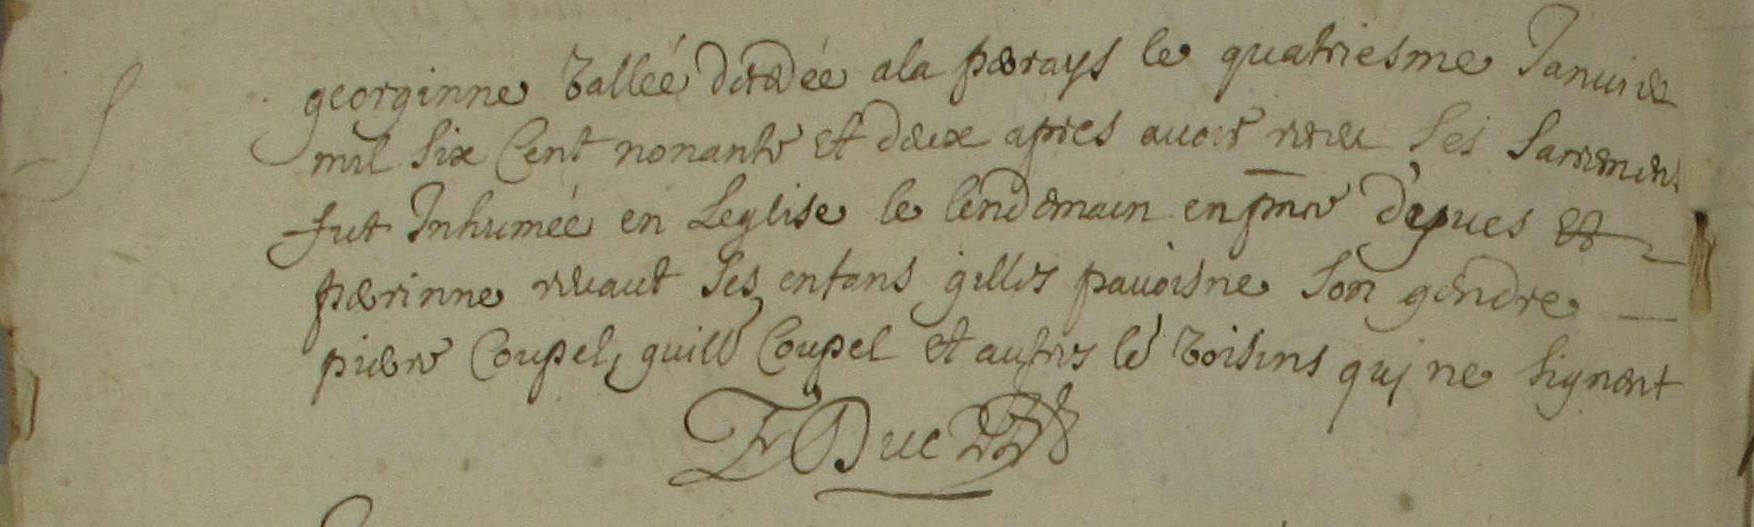 georginne vallée décédée a la perays le quatriesme Januier
mil six Cent nonante et deux apres auoir receu ses sacremens
fut Inhumée en Leglise le lendemain en pnce d'yues et
perinne ses enfans gilles pauoisne son gendre
pierre Coupel, guill Coupel et autres lés voisins quj ne signent
Duc